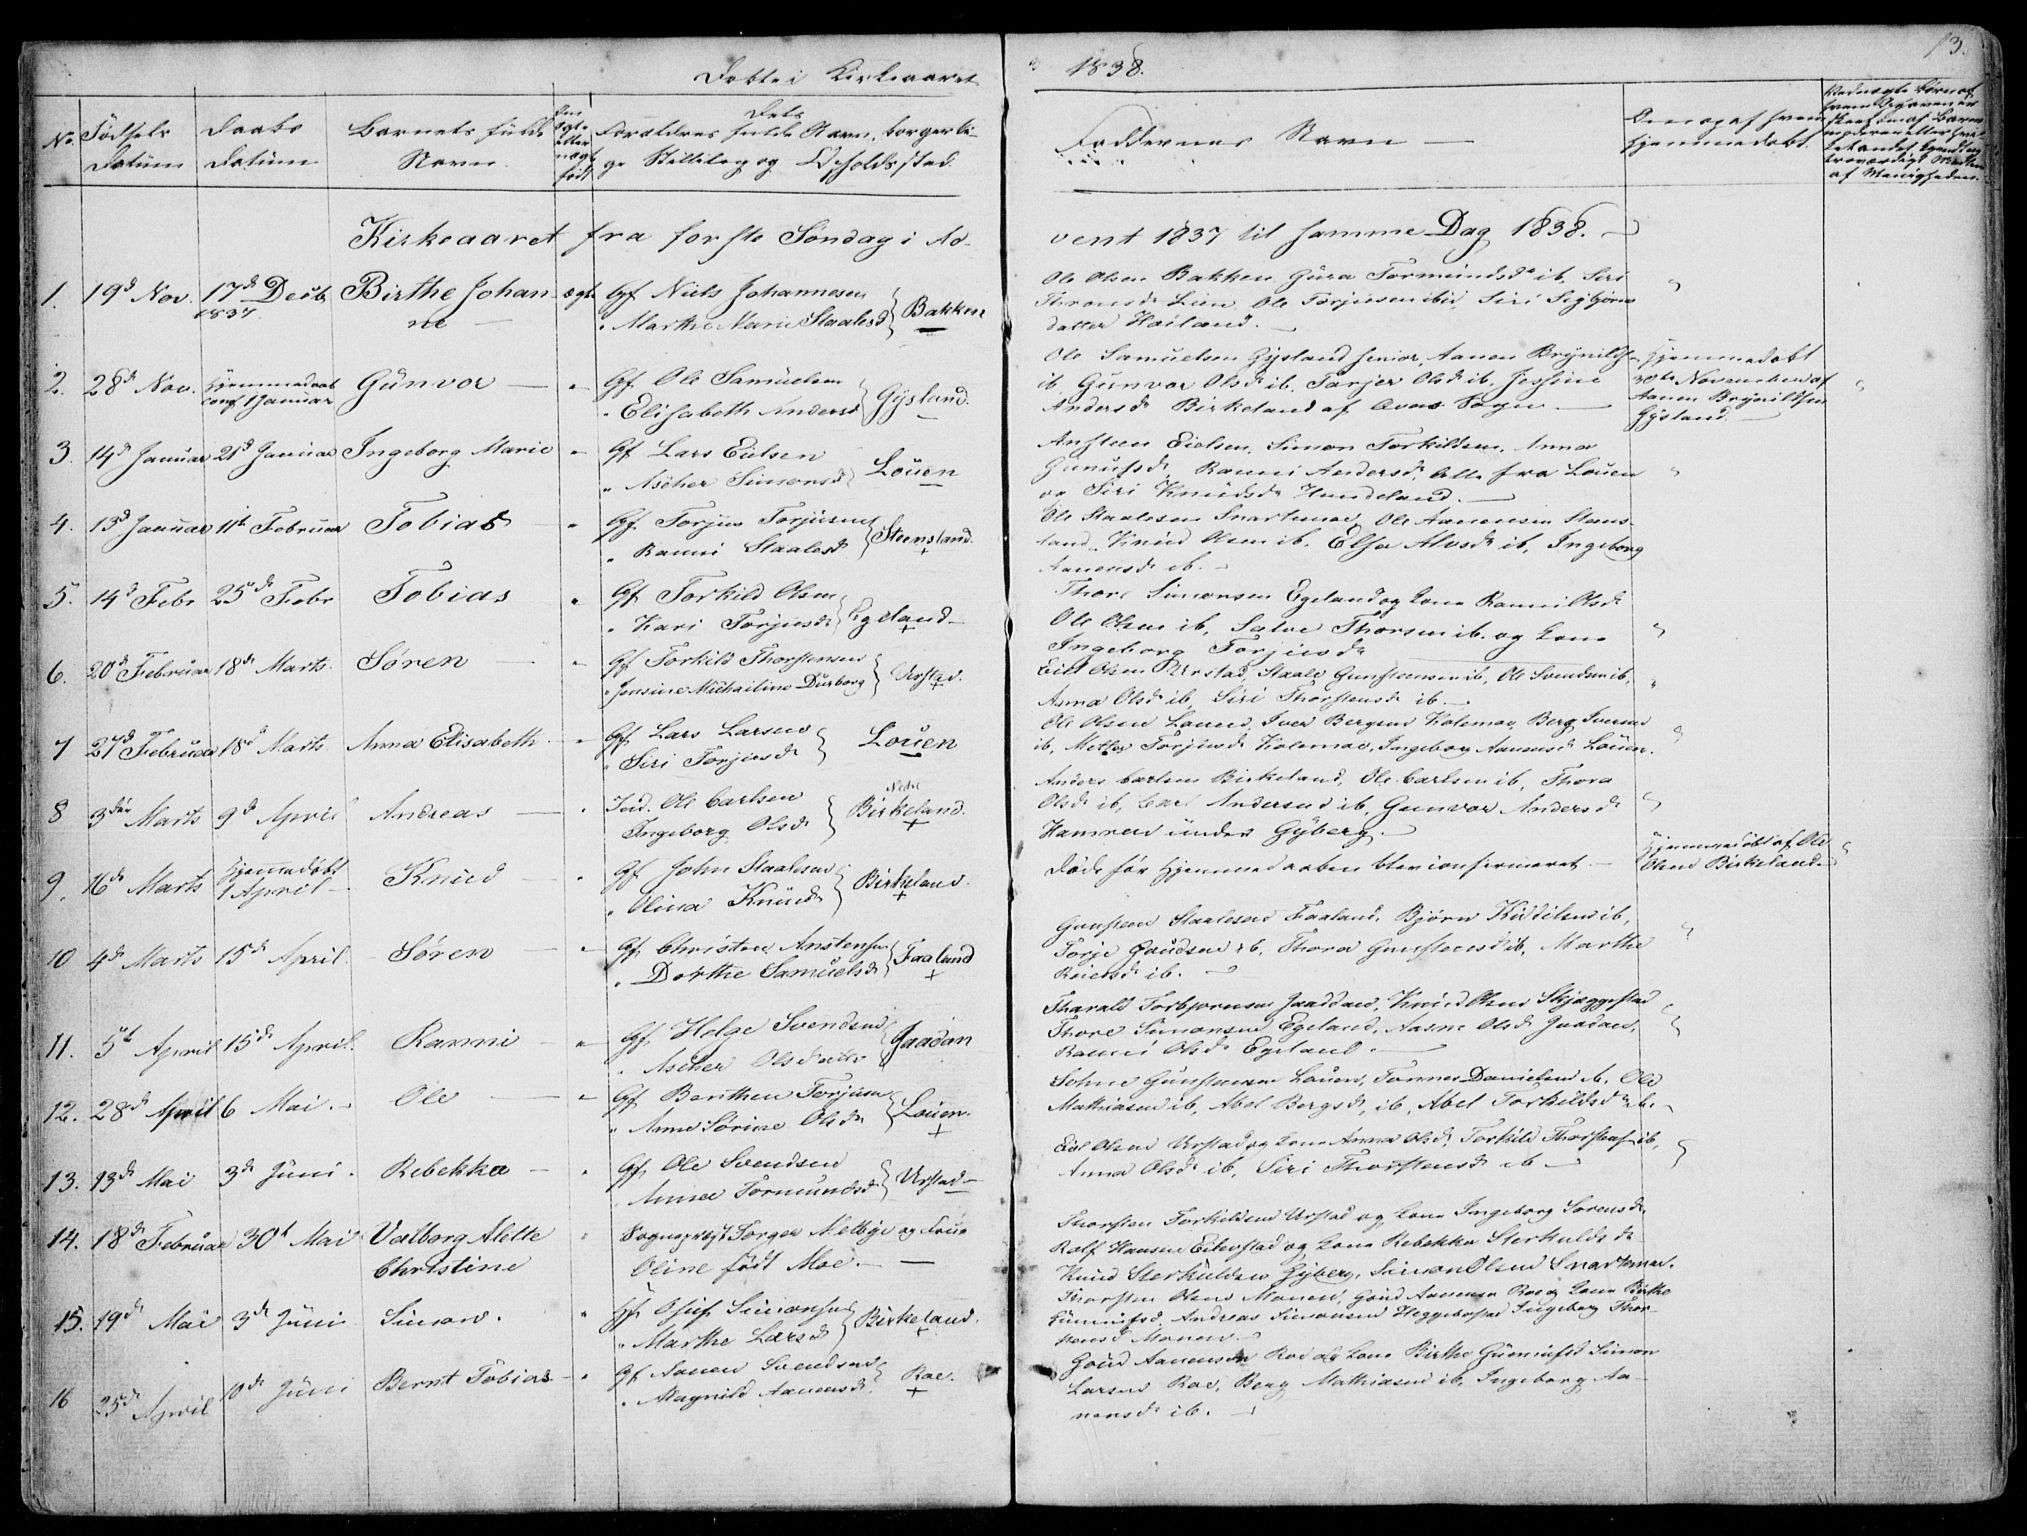 13.
Døbte i Kirkeaaret 1838.
No. Fødsels Datum
Daabs Datum
Barnets fulde Navn
Om ægte eller uægte født
Dets Forældres fulde Navn, borgerlige Stilling og Opholdssted
Faddernes Navn
Om og af hvem hjemmedøbt.
Kirkeaaret fra første Søndag i Advent 1837 til samme Dag 1838.
1. 19d Nov. 17d Decb 1837 Birthe Johanne ægte Gf Niels Johannesen
" Marthe Marie Staalesd } Bakken
Ole Olsen Bakken, Gura Tormundsdr ib, Siri
Thronsdr Lien, Ole Torjusen ibid, Siri Sigbjørns
datter Hailand.
2. 28d Nov. hjemmedøbt conf 1 Januar Gunvor " Gf. Ole Samuelsen
" Elisabeth Andersd } Gysland.
Ole Samuelsen Gysland senior, Aanen Brynildsen
ib, Gunvor Olsdr ib, Torjer Olsdr ib, Jessine
Andersdr Birkeland af Sogn
Hjemmedøbt
30te November af
Aanen Brynildsen
Gysland.
3. 14d Januar 21d Januar Ingeborg Marie " Gf Lars Eielsen
" Ascher Simonsd } Louen
Ansteen Eielsen, Simon Torkildsen, Anna
Gunufsdr, Ranni Andersdr, Alle fra Louen
og Siri Knudsdr Hundeland.
4. 13d Januar 11te Februar Tobias " Gf. Torjus Torjusen
" Ranni Staalesd } Steensland.
Ole Staalesen Snartemoe, Ole Aanensen Steens-
land, Knud Olsen ib. Elsa Alvsdr ib, Ingeborg
Aanensdr ib.
5. 14d Febr 25de Febr Tobias " Gf Torkild Olsen
" Kari Torjusdr } Egeland
Thore Simonsen Egeland og Kone Ranni Olsdr
Ole Olsen ib, Salve Thorsen ib. og Kone
Ingeborg Torjusdr
6. 20d Februar 18de Marts. Søren " Gf Torkild Thorstensen
" Jensine Michailine Durborg } Urstad.
Eiel Olsen Urstad, Staale Gunsteensen ib, Ole Svendsen ib,
Anna Olsdr ib, Siri Thorstensdr ib.
7 27d Februar 18d Marts Anna Elisabeth " Gf. Lars Larsen
" Siri Torjusdr } Louen
Ole Olsen Louen, Iver Bergsen Kolemoe, Berg Iversen
ib, Mette Torjusdr Kolemoe, Ingeborg Aanensdr Louen.
8 3die Marts 9d April Andreas " Ind. Ole Carlsen
Ingeborg Olsdr } Nedre Birkeland.
Anders Carlsen Birkeland, Ole Carlsen ib, Thora
Olsdr ib, Carl Andersen ib, Gunvor Andersdr
Hamren under Gyberg.
9. 16de Marts Hjemmedøbt 1 April Knud " Gf John Staalesen
" Olina Knudsdr } Birkeland.
Døde før Hjemmedaaben blev confirmeret.
Hjemmedøbt af Ole
Olsen Birkeland
10 4de Marts 15d April. Søren " Gf. Christen Anstensen
" Dorthe Samuelsdr } Faaland
Gunsteen Staalesen Faaland, Bjørn Kiddelsen ib,
Torje Goudsen ib, Thora Gunsteensdr ib, Marthe
Reiersdr ib.
11. 5te April 15de April. Ranni " Gf. Helge Svendsen
" Ascher Olsdatter } Jaadan
Tharald Torbjørnsen Jaadan, Knud Olsen Skjæggestad
Thore Simonsen Egeland, Aasne Olsdr Jaadan,
Ranni Olsdr Egeland.
12. 28d April 6 Mai. Ole " Gf. Benthen Torjusen
" Anne Sørine Olsdr } Louen.
Gunstensen Louen, Tønnes Danielsen ib, Ole
Mathiasen ib, Abel Bergsdr, ib, Abel Torkildsdr ib.
13. 13de Mai 3d Juni. Rebekka " Gf. Ole Svendsen
Anna Tormundsd } Urstad
Eiel Olsen Urstad og Kone Anna Olsdr, Torkild Thorstensen ib,
Anna Olsdr ib, Siri Thorstensdr ib
14. 18de Februar 30t Mai Valborg Alette Christine " Sogneprest Jørger Melbye og Frue
Oline født Moe.
Thorsten Torkildsen Urstad og Kone Ingeborg Sørensdr
Rolf Hansen Eikestad og Kone Rebekka Sterkuldsdr
Knud Sterkuldsen Gyberg, Simon Olsen Snartemoe.
15. 19de Mai 3de Juni Simon. " Gf. Osuf Simonsen
" Marthe Larsd } Birkeland.
Thorsten Olsen Monen, Goud Aanensen Roe og Kone Birthe
Gunnufsd, Andreas Simonsen Heggebostad Ingeborg Thor-
stensd Monen.
16 25d April 10de Juni Bernt Tobias " Gf. Aanen Svendsen
" Magnild Aanensdr. } Roe.
Goud Aanensen Roe og Kone Birthe Gunnufsd Simon
Larsen Roe, Berg Mathiasen ib, Ingeborg Aa-
nensdr ib.